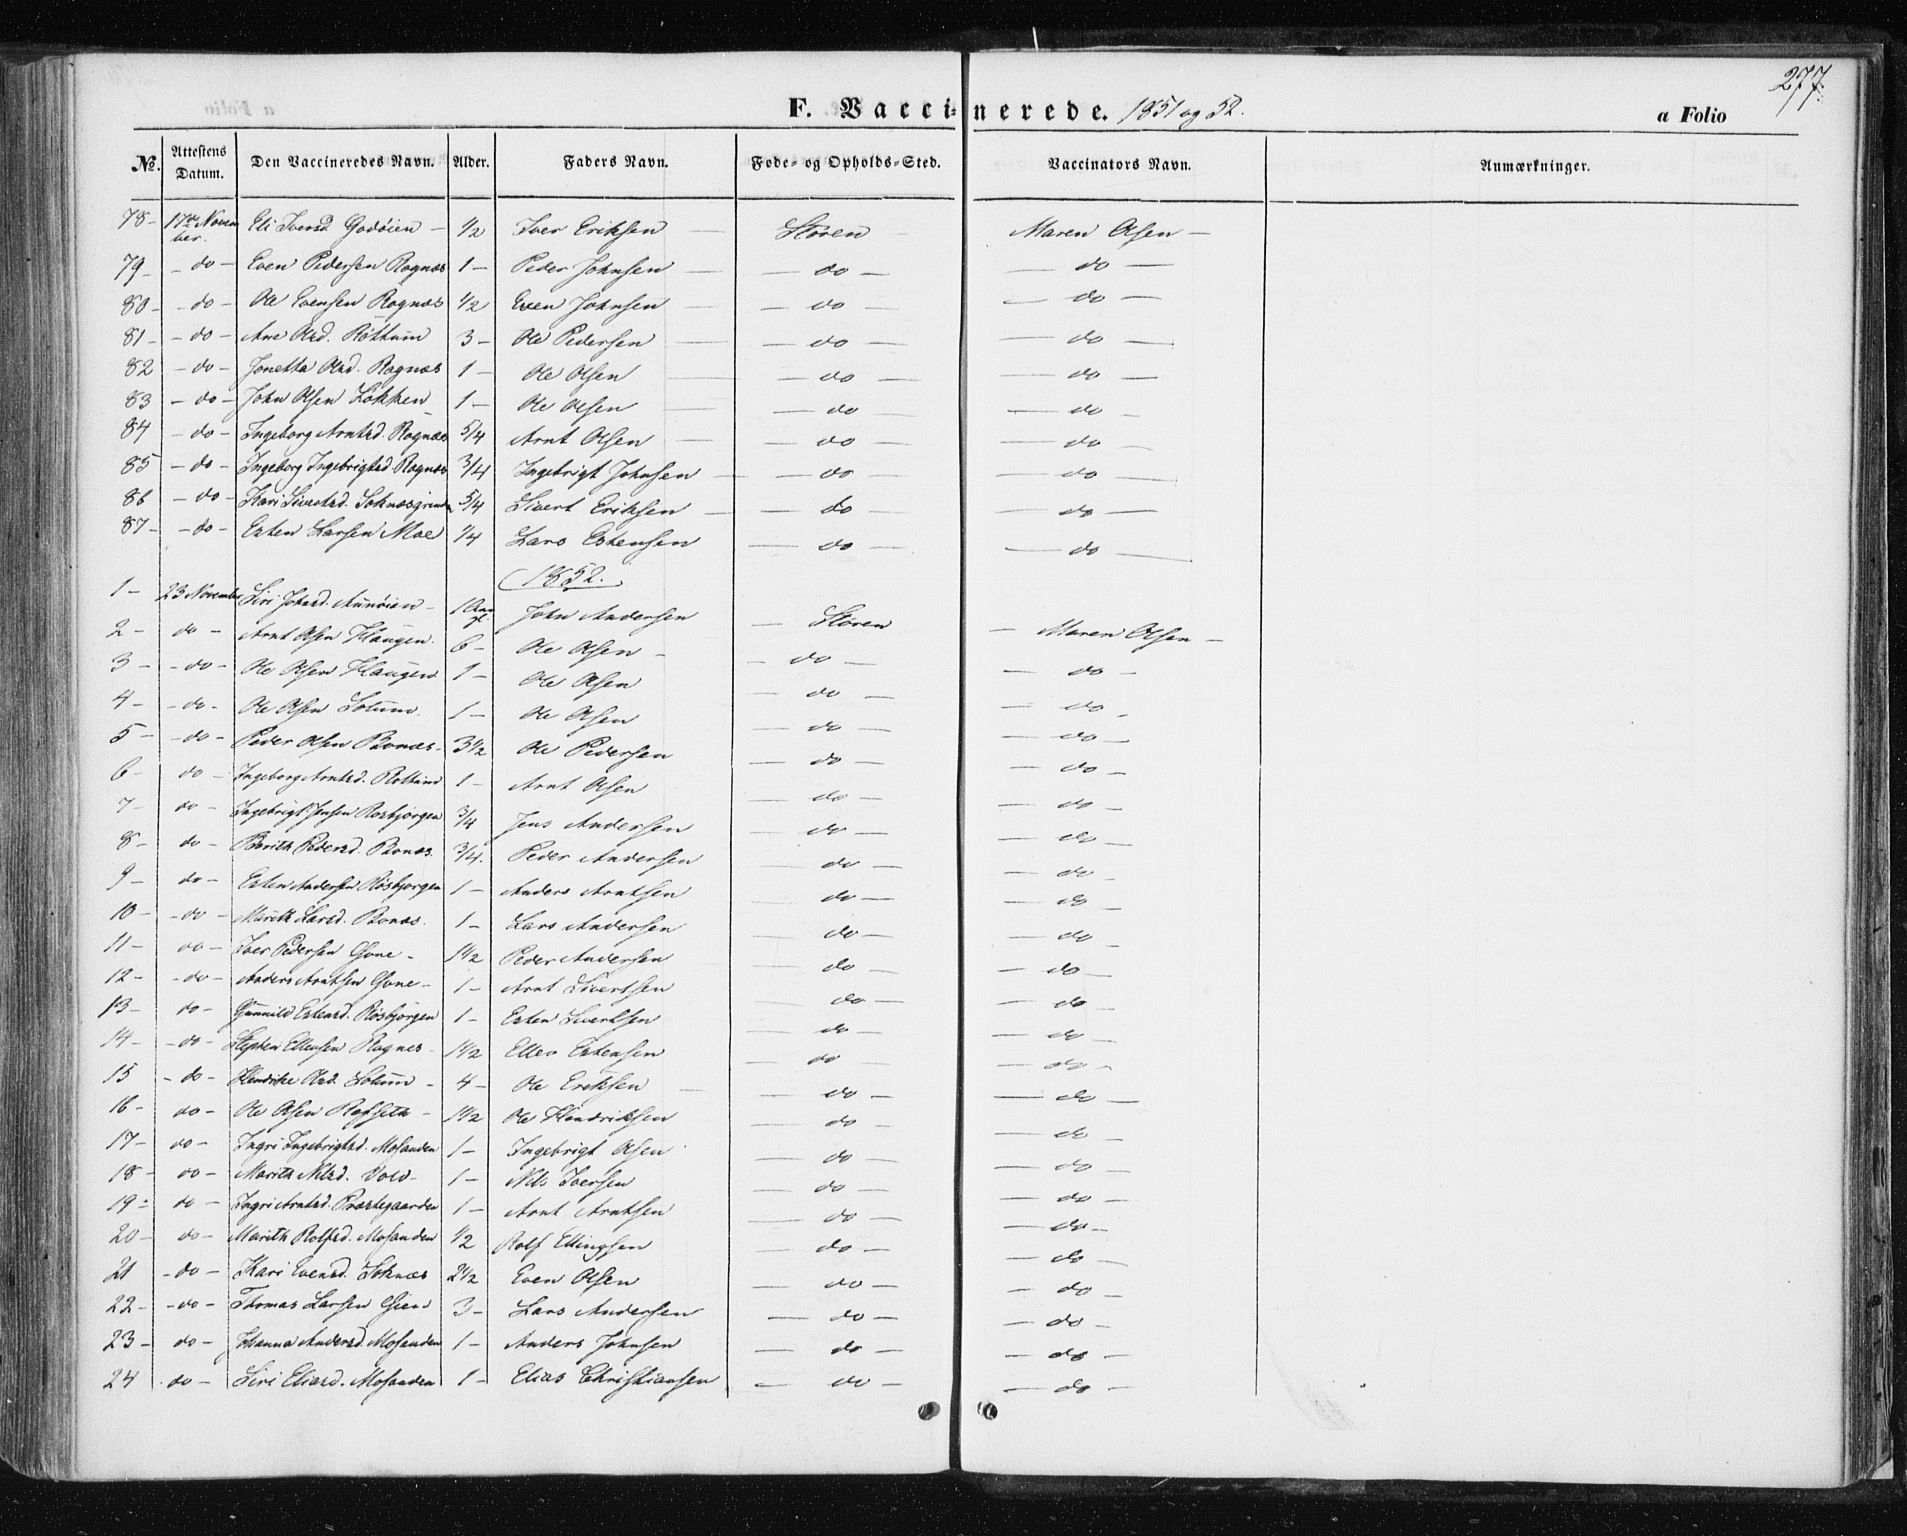 277.
F. Vaccinerede. 1851 og 52.
a Folio
No. Attestens Datum. Den Vaccineredes Navn. Alder. Faders Navn. Føde- og Opholds-Sted. Vaccinators Navn. Anmærkninger.
78 - 17de November. Eli Iversd Godøien - 1/2 Iver Eriksen - Støren - Maren Olsen -
79 - - do - Even Pedersen Rognæs 1 - Peder Johnsen - do - - do -
80 - - do - Ole Evensen Rognæs 1/2 Even Johnsen - do - - do -
81 - - do - Ane Olsd. Røttum 3 - Ole Pedersen - do - - do -
82 - do - Jonetta Olsd. Rognæs 1 - Ole Olsen - do - - do -
83 - do - John Olsen Løkken 1 - Ole Olsen - do - - do -
84 - do - Ingeborg Arntsd. Rognæs 5/4 Arnt Olsen - do - - do -
85 - do - Ingeborg Ingebrigtsd Rognæs 3/4 Ingebrigt Johnsen - do - - do -
86 - do - Kari Sivertsd. Soknæsgrinden 5/4 Sivert Eriksen - do - - do -
87 - - do - Esten Larsen Moe 1/4 Lars Estensen - do - - do -
1852.
1 - 23 November Siri Johnsd. Aunøien - 1 Aar gl. John Andersen - Støren - Maren Olsen -
2 - do - Arnt Olsen Haugen. 6 - Ole Olsen - - do - - do -
3 - - do - Ole Olsen Haugen 1 - Ole Olsen - do - - do -
4 - - do - Ole Olsen Solum. 1 - Ole Olsen - do - - do -
5 - - do - Peder Olsen Bonæs - 3 1/2 Ole Pedersen - do - - do -
6 - do - Ingeborg Arntsd. Rottum 1 - Arnt Olsen - do - - do -
7 - do - Ingebrigt Jensen Rosbjørgen 3/4 Jens Andersen - do - - do -
8 - do - Berith Pedersd. Bonæs. 3/4. Peder Andersen - do - - do -
9 - do - Esten Andersen Rosbjørgen 1 - Anders Arntsen - do - - do -
10 - - do - Marith Larsd. Bonæs. 1 - Lars Andersen - do - - do -
11 - do - Iver Pedersen Gone - 1 1/2 Peder Andersen - do - - do -
12 - - do - Anders Arntsen Gone - 1 - Arnt Sivertsen - do - - do -
13 - do - Gunnild Estensd. Rosbjørgen 1 - Esten Sivertsen - do - - do -
14 - - do - Stephen Ellevsen Rognes - 1 1/2 Ellev Estensen - do - - do -
15 - do - Hendrike Olsd. Solum - 4 - Ole Eriksen - do - - do -
16 - do - Ole Olsen Rofseth - 1 1/2 Ole Hendriksen - do - - do -
17 - do - Ingri Ingebrigtsd. Mosanden 1 - Ingebrigt Olsen - do - - do -
18 - do - Marith Nilsd. Vold - 1 - Nils Iversen - do - - do -
19 - do - Ingri Arntsd. Præstegaarden 1 - Arnt Arntsen - do - - do -
20 - do - Marith Rolfsd. Mosanden 1/2 Rolf Ellingsen - do - - do -
21 - do - Kari Evensd. Soknæs 2 1/2 Even Olsen - do - - do -
22 - - do - Thomas Larsen Gien 3 - Lars Andersen - do - - do -
23 - do - Johanna Andersd. Mosanden 1 - Anders Johnsen - do - - do -
24 do - Siri Eliasd. Mosanden 1 - Elias Christiansen - do - - do -